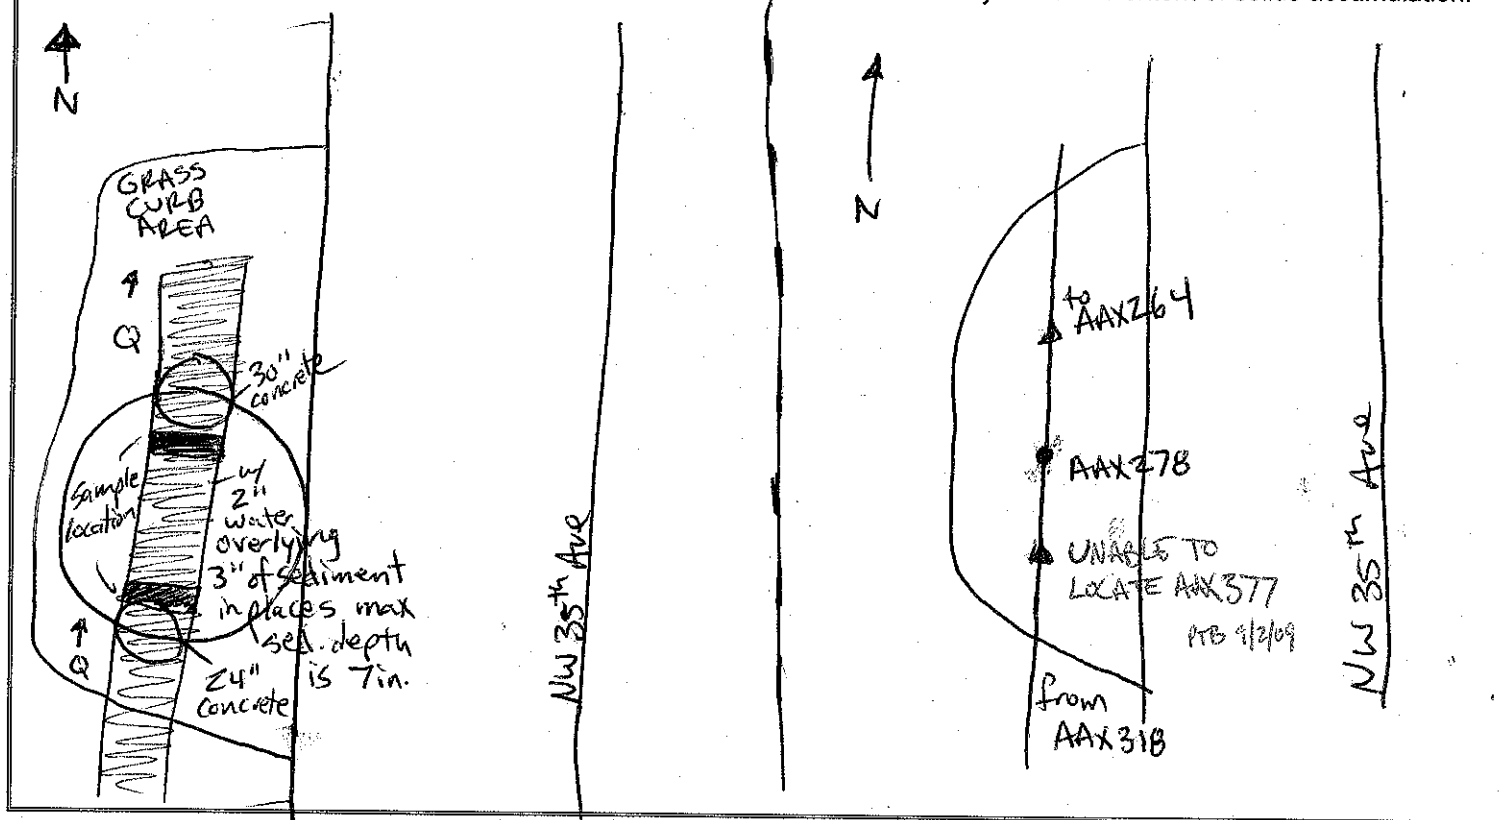 accumulation.
N
GRASS
CURB
AREA
Q
30"
concrete
Sample
location
w/
2"
water
overlying
3" of sediment
in places max
sed. depth
is 7in.
Q
24"
concrete
NW 35th Ave
N
to
AAX264
AAX278
UNABLE TO
LOCATE AAX377
PTB 9/2/09
from
AAX318
NW 35th Ave